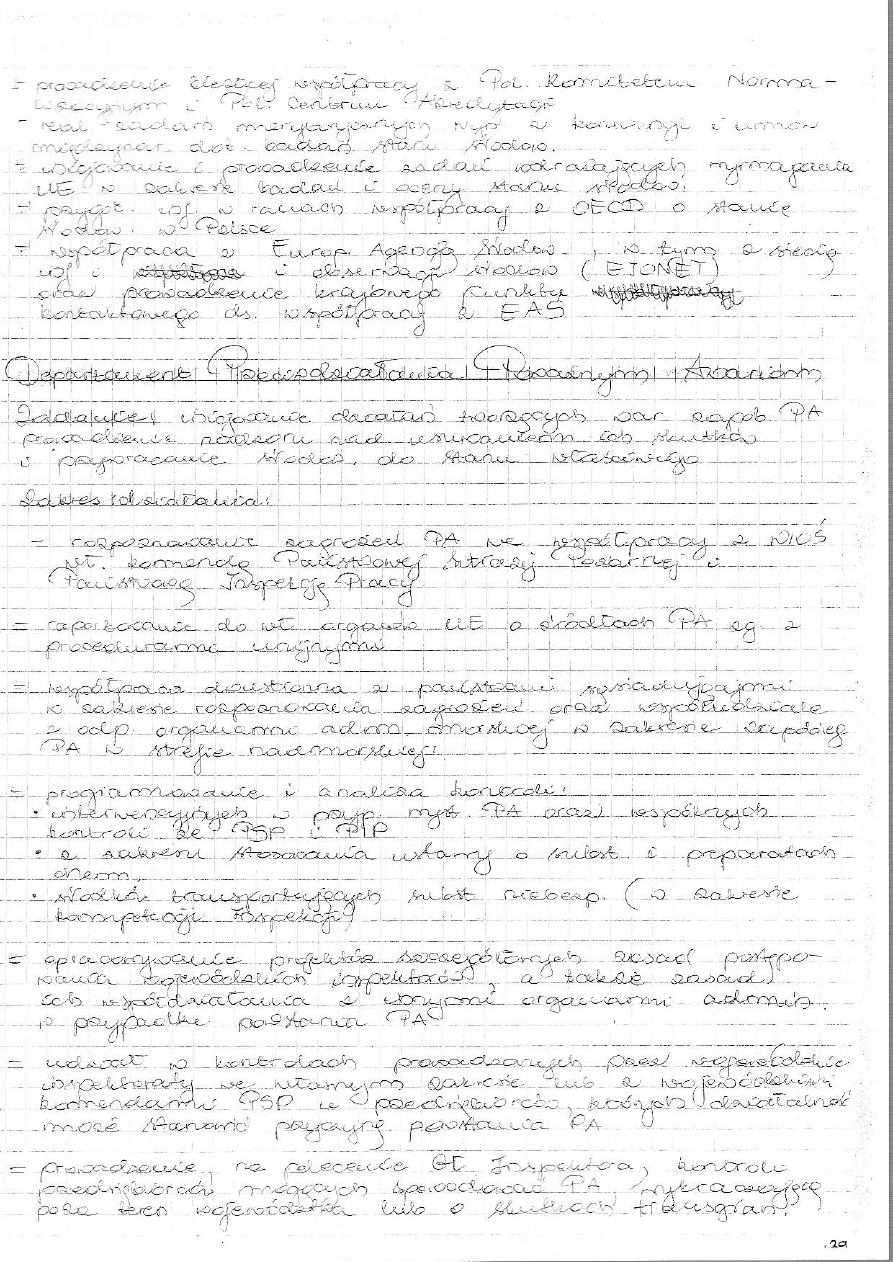 = prowadzenie bieżącej współpracy z Pol. Komitetem Norma-
lizacyjnym i Pol. Centrum Akredytacji
- real. zadań merytorycznych wyp. z konwencji i umów
międzynar. dot. badań stanu środow.
= inicjowanie i prowadzenie zadań wdrażających wymagania
UE w zakresie badań i oceny stanu środow.
= przygot. inf. w ramach współpracy z OECD o stanie
środow. w Polsce
= współpraca z Europ. Agencją Środow., w tym z siecią
inf i i obserwacji środow (EIONET)
oraz prowadzenie krajowego punktu
kontaktowego ds. współpracy z EAŚ
Departament Przeciwdziałania Poważnym Awariom
Zadanie: inicjowanie działań tworzących war. zapob PA
prowadzenie nadzoru nad usuwaniem ich skutków
i przywracanie środow. do stanu właściwego
Zakres działania:
= rozpoznawanie zagrożeń PA we współpracy z WIOŚ
wł. komendą Państwowej Straży Pożarnej i
Państwową Inspekcją Pracy
= raportowanie do wł. organów UE o źródłach PA zg. z
procedurami unijnymi
= współpraca dwustronna z państwami sąsiadującymi
w zakresie rozpoznawania zagrożeń oraz współdziała
z odp. organami adm. morskiej w zakresie zapobieg
PA w strefie nadmorskiej
= programowanie i analiza kontroli:
• interwencyjnych w przyp. wyst. PA oraz wspólnych
kontroli ze PSP i PIP
• z zakresu stosowania ustawy o subst i preparatach
chem.
• środków transportujących subst niebezp. (w zakresie
kompetencji Inspekcji)
= opracowywanie projektów szczegółowych zasad postępo-
wania wojewódzkich inspektorów, a także zasad
ich współdziałania z innymi organami admin.
w przypadku powstania PA
= udział w kontrolach prowadzonych przez wojewódzkie
inspektoraty we własnym zakresie lub z wojewódzkimi
komendami PSP u przedsiębiorców, których działalność
może stanowić przyczynę powstania PA
= prowadzenie, na polecenie Gł. Inspektora, kontroli
przedsiębiorców mogących spowodować PA, wykraczającą
poza teren województwa lub o skutkach transgran.
29